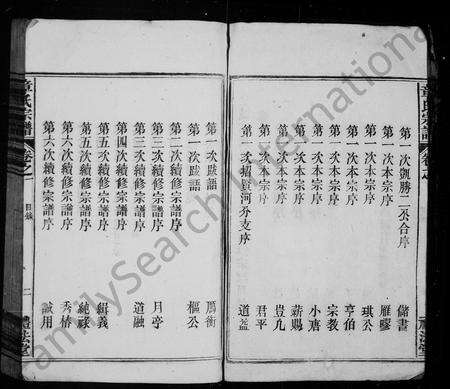 章氏宗譜
卷之
禮法堂
第一次凱勝二公合序 儲書
第一次本宗序 雁驛
第一次本宗序 琪公
第一次本宗序 亨伯
第一次本宗序 宗教
第一次本宗序 小唐
第一次本宗序 薪賜
第一次本宗序 豈凡
第一次本宗序 君平
第一次招賢河分支序 道益
第一次跋語 鴈衡
第一次跋語 樞公
第二次續修宗譜序
第三次續修宗譜序 月亭
第三次續修宗譜序 道融
第四次續修宗譜序
第五次續修宗譜序 緝義
第五次續修宗譜序 純祿
第六次續修宗譜序 秀椿
第六次續修宗譜序 誠用
章氏宗譜
卷之
目錄
二
禮法堂
FamilySearch International